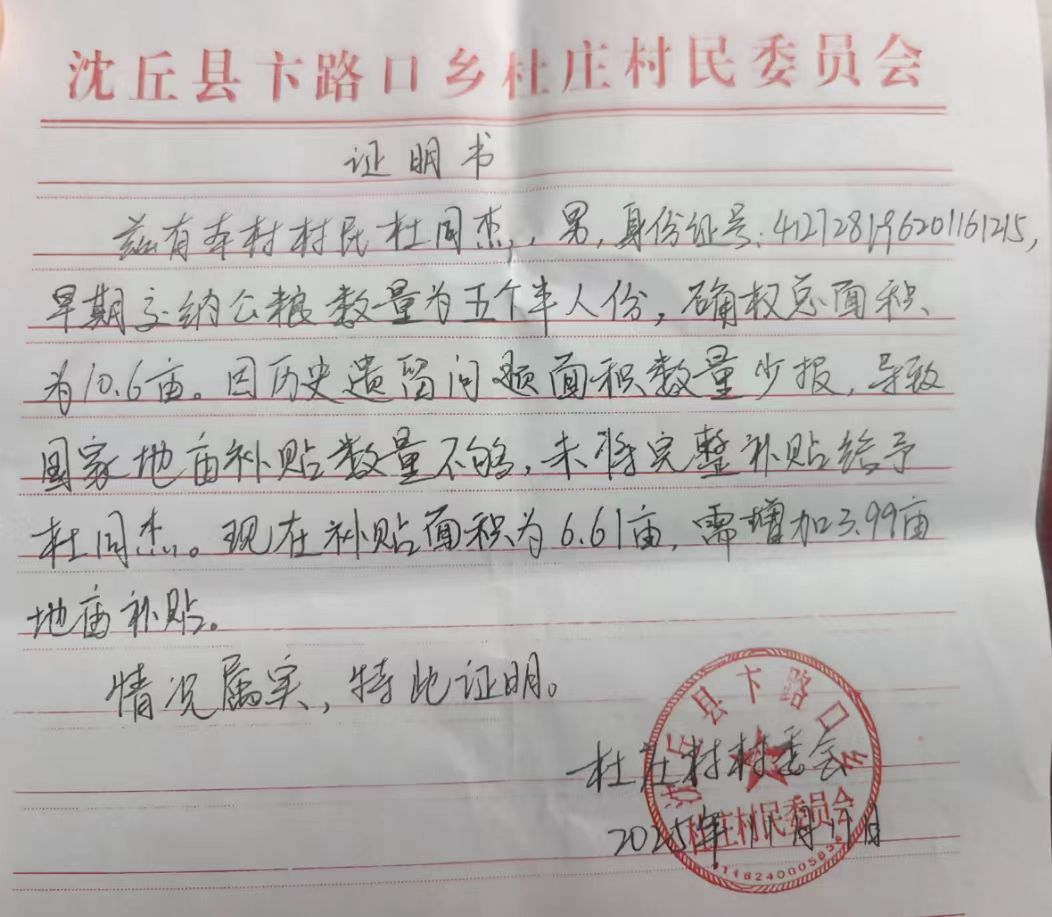 沈丘县卞路口乡杜庄村民委员会
证明书
兹有本村村民杜同杰,男,身份证号:412728196201161215,
早期交纳公粮数量为五个半人份,确权总面积
为10.6亩。因历史遗留问题面积数量少报,导致
国家地亩补贴数量不够,未将完整补贴给予
杜同杰。现在补贴面积为6.61亩,需增加3.99亩
地亩补贴。
情况属实,特此证明。
杜庄村村委会
2025年11月
沈丘县卞路口乡
杜庄村民委员会